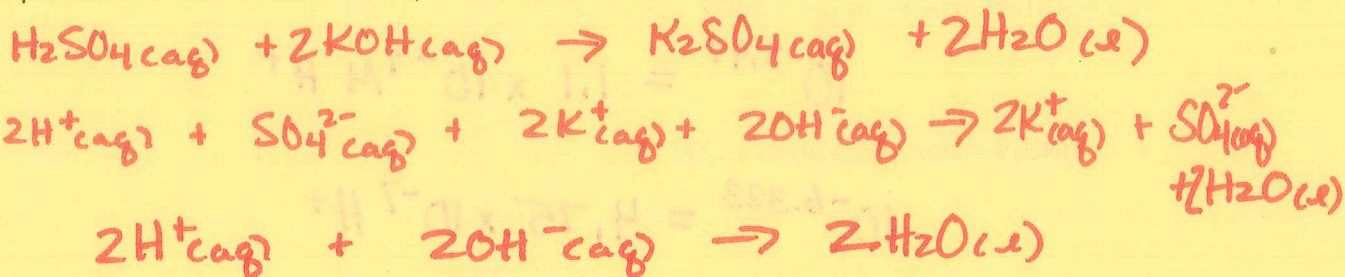 H₂SO₄(aq) + 2KOH(aq) → K₂SO₄(aq) + 2H₂O(l)
2H⁺(aq) + SO₄²⁻(aq) + 2K⁺(aq) + 2OH⁻(aq) → 2K⁺(aq) + SO₄²⁻(aq)
+2H₂O(l)
2H⁺(aq) + 2OH⁻(aq) → 2H₂O(l)